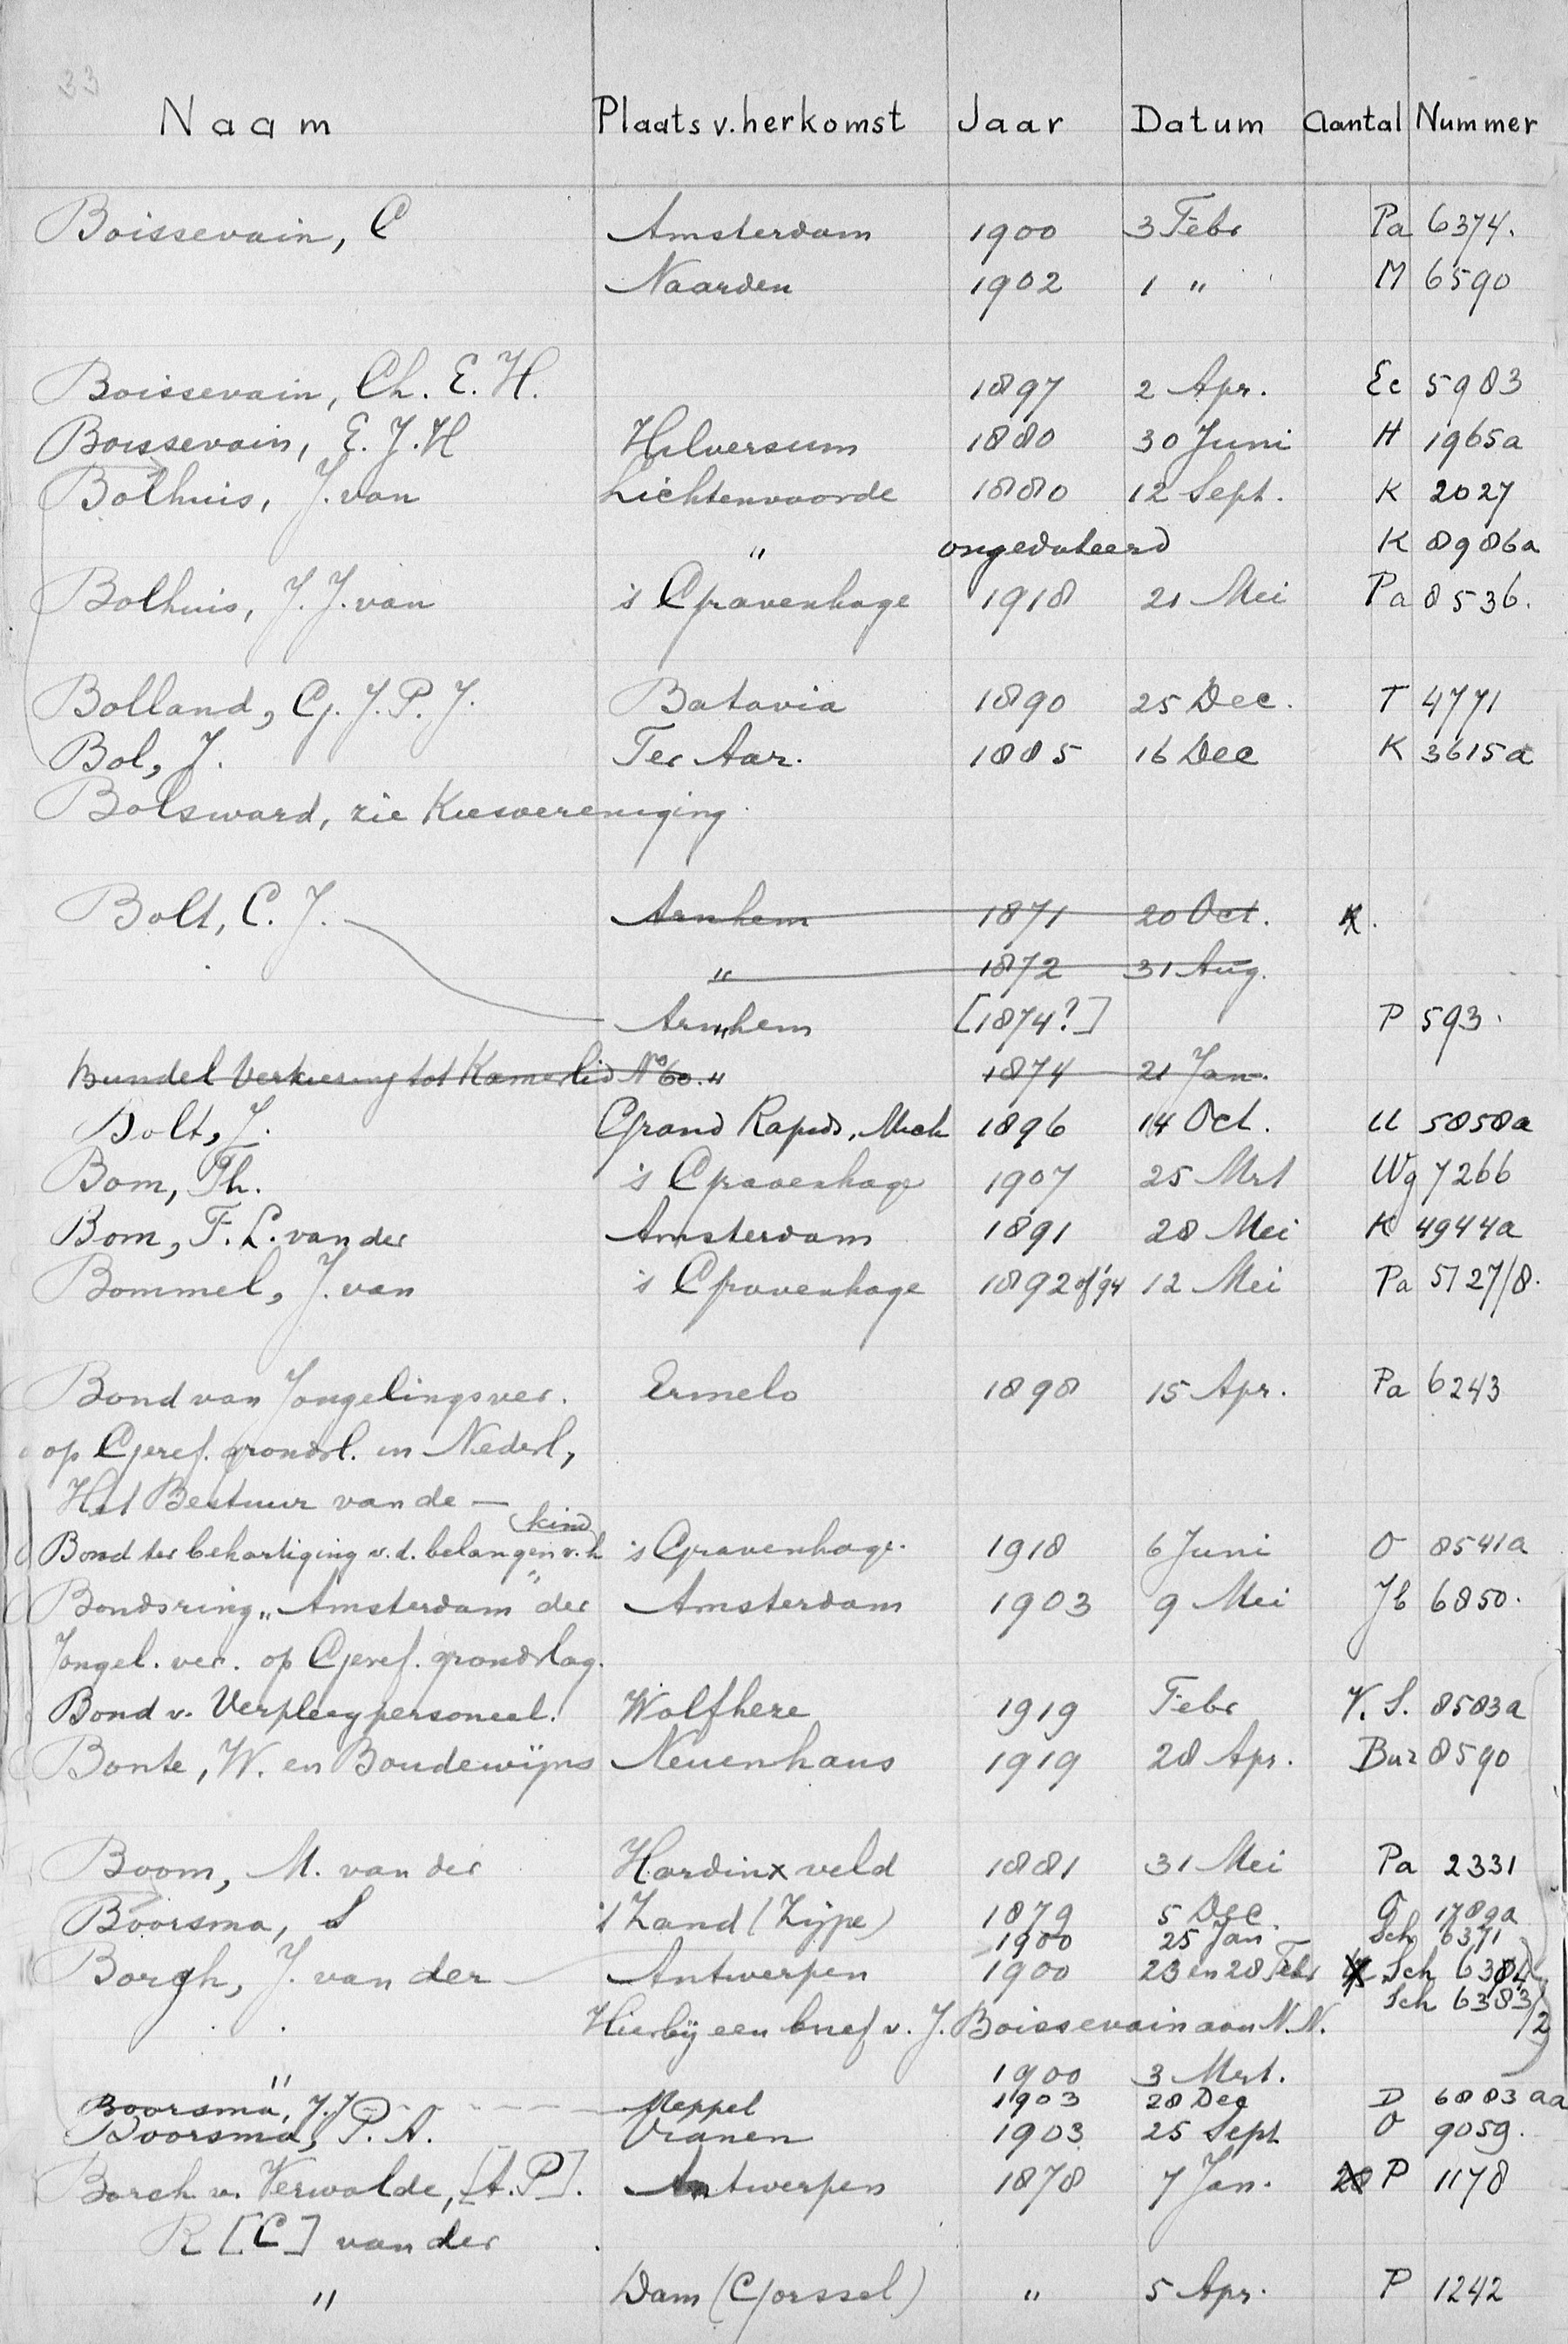 33
Naam Plaats v. herkomst Jaar Datum Aantal Nummer
Boissevain, C Amsterdam 1900 3 Febr Pa 6374.
Naarden 1902 1 " M 6590
Boissevain, Ch. E. H. 1897 2 Apr. Ec 5983
Boissevain, E. J. H Hilversum 1880 30 Juni H 1965a
Bolhuis, J. van Lichtenvoorde 1880 12 Sept. K 2027
" ongedateerd K 8986a
Bolhuis, J. J. van 's Gravenhage 1918 21 Mei Pa 8536.
Bolland, G. J. P. J. Batavia 1890 25 Dec. T 4771
Bol, J. Ter Aar. 1885 16 Dec K 3615a
Bolsward, zie Kiesvereniging
Bolt, C. J. Arnhem 1871 20 Oct. K.
" 1872 31 Aug.
Arnhem [1874?] P 593.
Bundel Verkiesing tot Kamerlid No 60. " 1874 21 Jan.
Bolt, J. Grand Rapids, Mich 1896 14 Oct. U 5858a
Bom, Th. 's Gravenhage 1907 25 Mrt Wg 7266
Bom, F. L. van der Amsterdam 1891 28 Mei K 4944a
Bommel, J. van 's Gravenhage 1892 of '94 12 Mei Pa 5127/8.
Bond van Jongelingsver. Ermelo 1898 15 Apr. Pa 6243
op Geref. grondsl. in Nederl,
Het Bestuur van de —
kind
Bond ter behartiging v. d. belangen v. h 's Gravenhage. 1918 6 Juni O 8541a
Bondsring „Amsterdam" der Amsterdam 1903 9 Mei Jb 6850.
Jongel. ver. op Geref. grondslag.
Bond v. Verpleegpersoneel. Wolfheze 1919 Febr V. S. 8583a
Bonte, W. en Boudewijns Neuenhaus 1919 28 Apr. Bur 8590
Boom, M. van der Hardinxveld 1881 31 Mei Pa 2331
Boorsma, S 't Zand (Zijpe) 1879 5 Dec. O 1789a
1900 25 Jan Sch 6371
Borgh, J. van der Antwerpen 1900 23 en 28 Febr Sch 6382
Sch 6383/2
Hierbij een brief v. J. Boissevain aan N. N.
" 1900 3 Mrt.
Boorsma, J. J. Meppel 1903 28 Dec D 6883 aa
Boorsma, P. A. Vranen 1903 25 Sept O 9059.
Borch v. Verwolde, [A. P]. Antwerpen 1878 7 Jan. 28 P 1178
R [C] van der
" Dam (Gorssel) " 5 Apr. P 1242